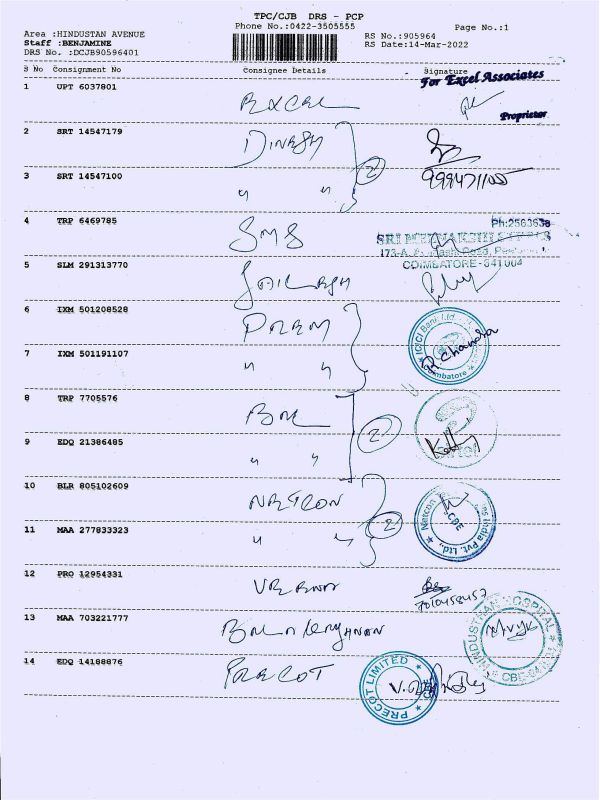 TPC/CJB DRS - PCP
Phone No.:0422-3505555 Page No.:1
Area :HINDUSTAN AVENUE RS No.:905964
Staff :BENJAMINE RS Date:14-Mar-2022
DRS No. :DCJB90596401
S No Consignment No Consignee Details Signature
For Excel Associates
1 UPT 6037801 EXCEL
Proprietor
2 SRT 14547179 DINESH 2
3 SRT 14547100 " " 9994711005
Ph:2563638
4 TRP 6469785 SMS SRI
COIMBATORE-641004
5 SLM 291313770 SAILESH
6 IXM 501208528 PREM ICICI Bank Ltd
7 IXM 501191107 " " R. Chandra Coimbatore
8 TRP 7705576 2
9 EDQ 21386485 " "
10 BLR 805102609 NETCON 2 Netcon India Pvt. Ltd., CBE
11 MAA 277833323 " "
12 PRO 12954331
13 MAA 703221777 HINDUSTHAN HOSPITAL
14 EDQ 14188876 PRECOT PRECOT LIMITED